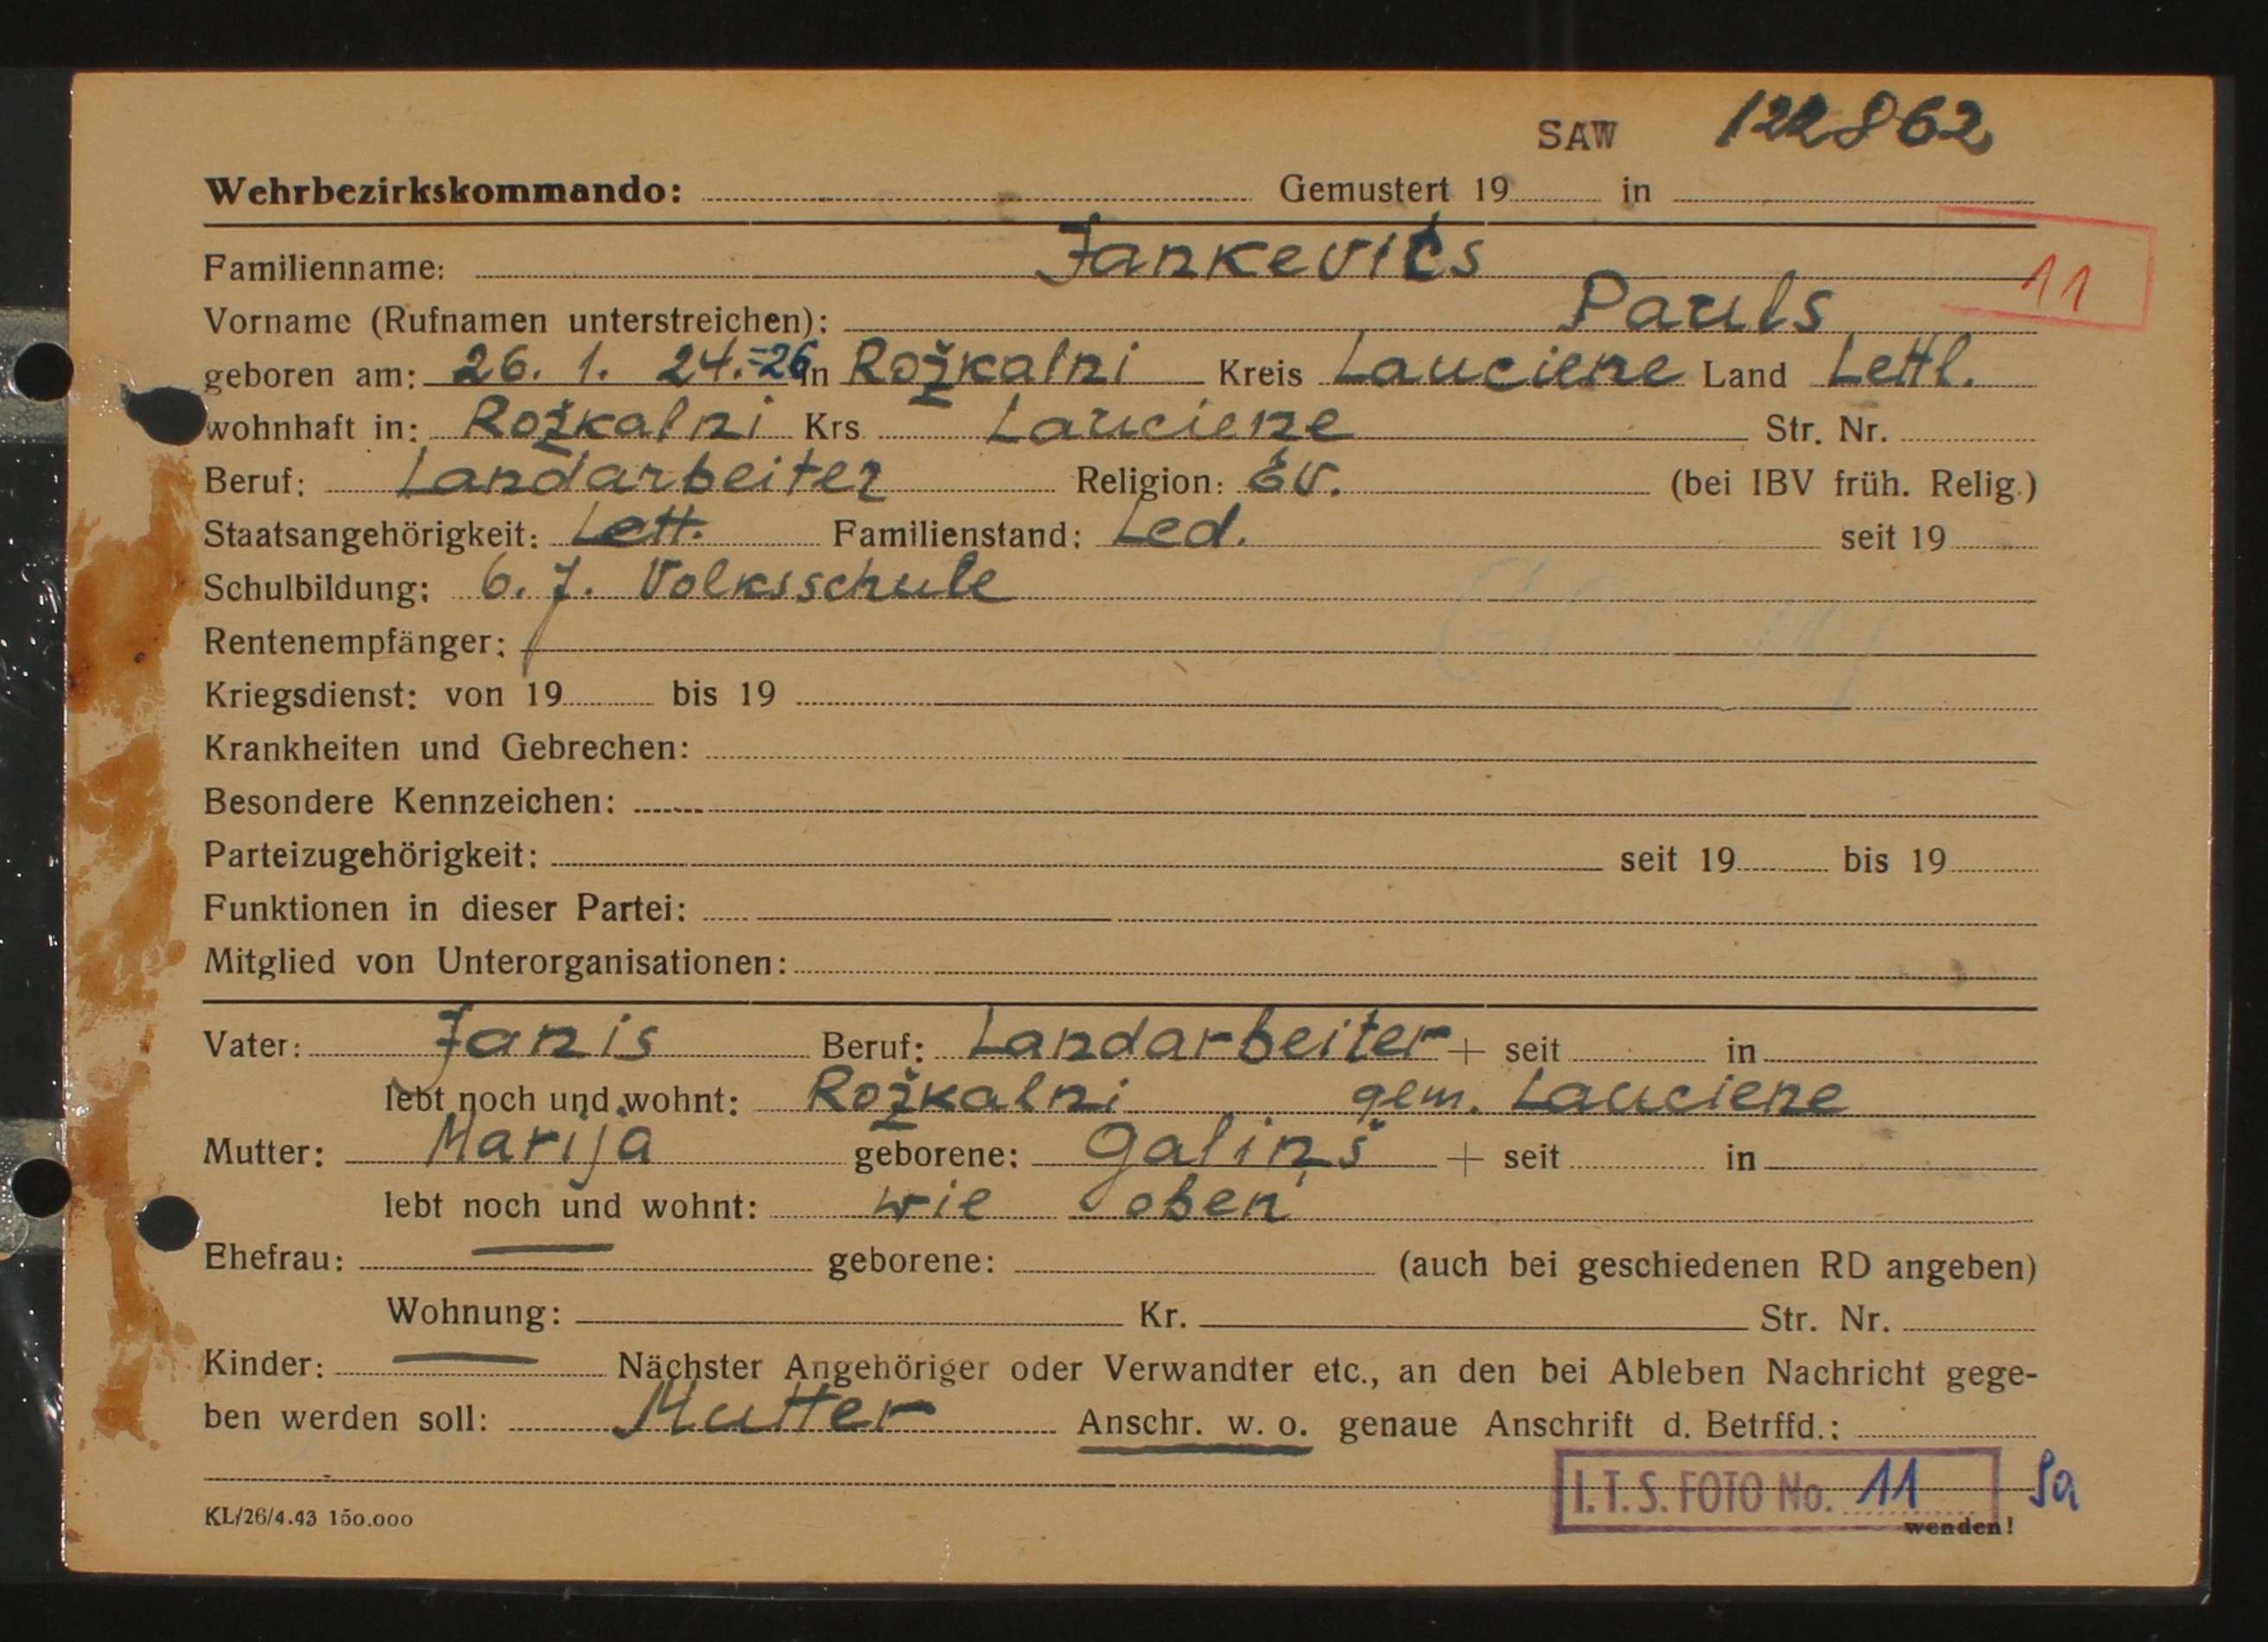 SAW 122862
Wehrbezirkskommando: Gemustert 19 in
Familienname: Jankevics
11
Vorname (Rufnamen unterstreichen): Pauls
geboren am: 26. 1. 24.=26 in Rožkalni Kreis Lauciene Land Lettl.
wohnhaft in: Rožkalni Krs Lauciene Str. Nr.
Beruf: Landarbeiter Religion: Ev. (bei IBV früh. Relig.)
Staatsangehörigkeit: Lett. Familienstand: Led. seit 19
Schulbildung: 6. J. Volksschule
Rentenempfänger:
Kriegsdienst: von 19 bis 19
Krankheiten und Gebrechen:
Besondere Kennzeichen:
Parteizugehörigkeit: seit 19 bis 19
Funktionen in dieser Partei:
Mitglied von Unterorganisationen:
Vater: Janis Beruf: Landarbeiter + seit in
lebt noch und wohnt: Rožkalni gem. Lauciene
Mutter: Marija geborene: Galiņš + seit in
lebt noch und wohnt: wie oben
Ehefrau: — geborene: (auch bei geschiedenen RD angeben)
Wohnung: Kr. Str. Nr.
Kinder: — Nächster Angehöriger oder Verwandter etc., an den bei Ableben Nachricht gege-
ben werden soll: Mutter Anschr. w. o. genaue Anschrift d. Betrffd.:
I.T.S. FOTO No. 11 Sa
KL/26/4.43 150.000 wenden!